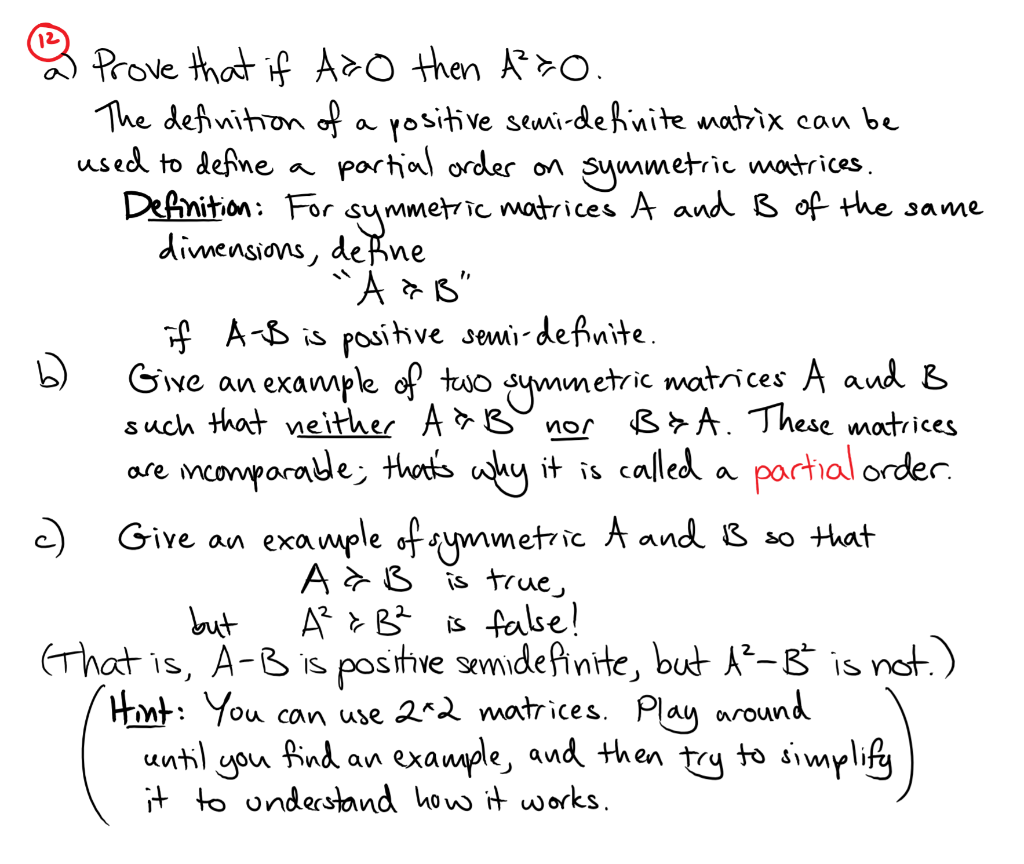 12
a) Prove that if A≽0 then A²≽0.
The definition of a positive semi-definite matrix can be
used to define a partial order on symmetric matrices.
Definition: For symmetric matrices A and B of the same
dimensions, define
"A ≽ B"
if A-B is positive semi-definite.
b) Give an example of two symmetric matrices A and B
such that neither A≽B nor B≽A. These matrices
are incomparable; that's why it is called a partial order.
c) Give an example of symmetric A and B so that
A ≽ B is true,
but A² ≽ B² is false!
(That is, A-B is positive semidefinite, but A²-B² is not.)
(Hint: You can use 2×2 matrices. Play around
until you find an example, and then try to simplify
it to understand how it works.)